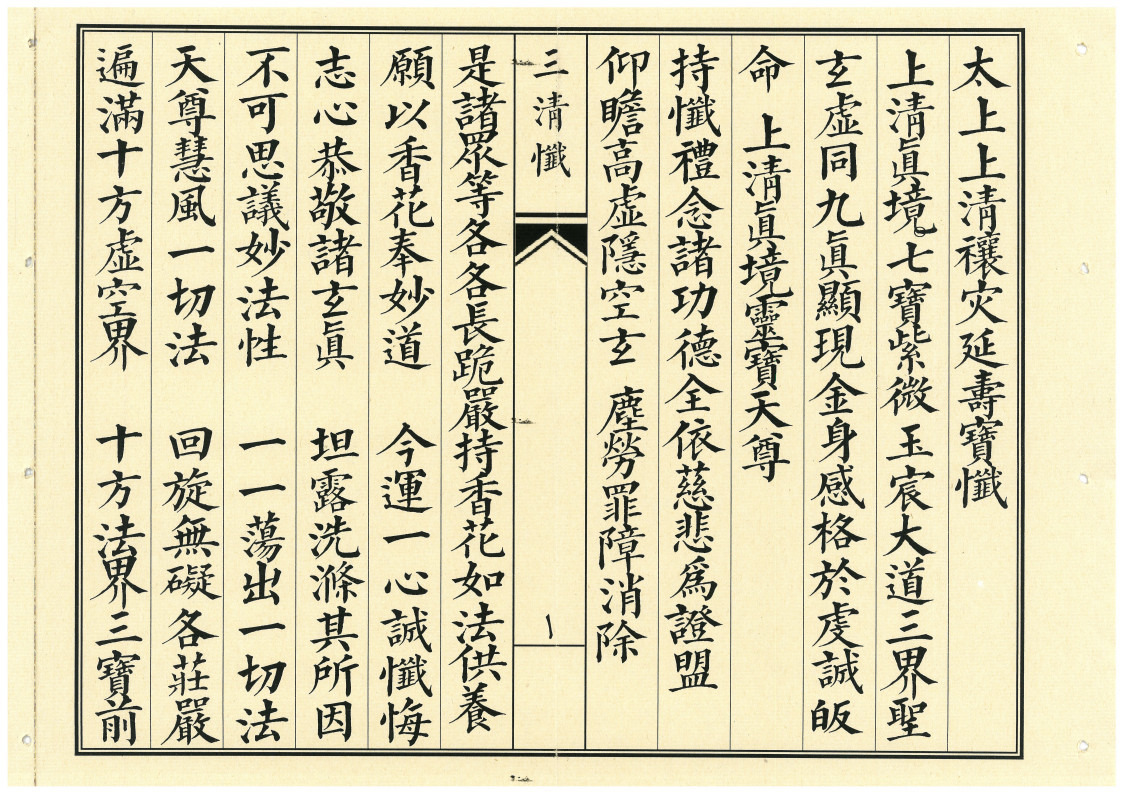 太上上清禳灾延壽寶懺
上清眞境七寶紫微玉宸大道三界聖
玄虛同九眞顯現金身感格於虔誠皈
命 上清眞境靈寶天尊
持懺禮念諸功德全依慈悲爲證盟
仰瞻高虛隱空玄 塵勞罪障消除
三清懺
是諸眾等各各長跪嚴持香花如法供養
願以香花奉妙道 今運一心誠懺悔
志心恭敬諸玄眞 坦露洗滌其所因
不可思議妙法性 一一蕩出一切法
天尊慧風一切法 回旋無礙各莊嚴
遍滿十方虛空界 十方法界三寶前